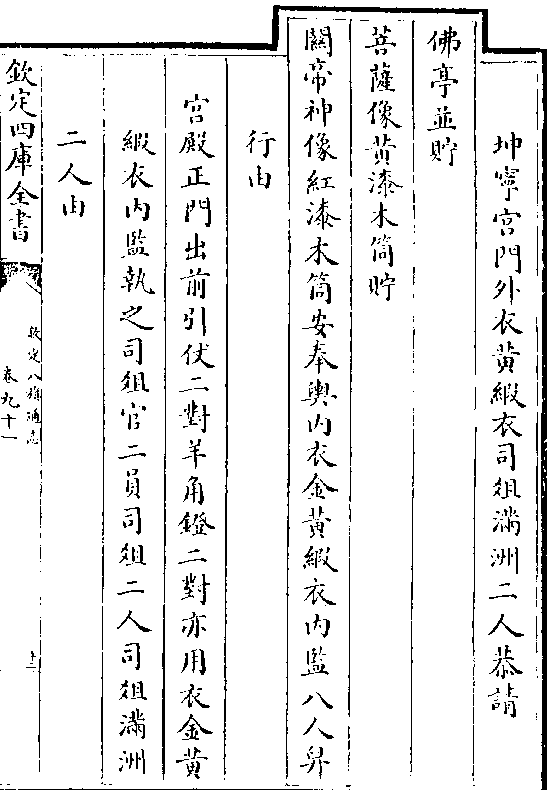 坤寧宮門外衣黄緞衣司俎滿洲二人恭請
佛亭並貯
菩薩像黄漆木筒貯
關帝神像紅漆木筒安奉輿内衣金黄緞衣内監八人舁
行由
宮殿正門出前引仗二對羊角鐙二對亦用衣金黄
緞衣内監執之司俎官二員司俎二人司俎滿洲
二人由
欽定四庫全書
欽定八旗通志
卷九十一